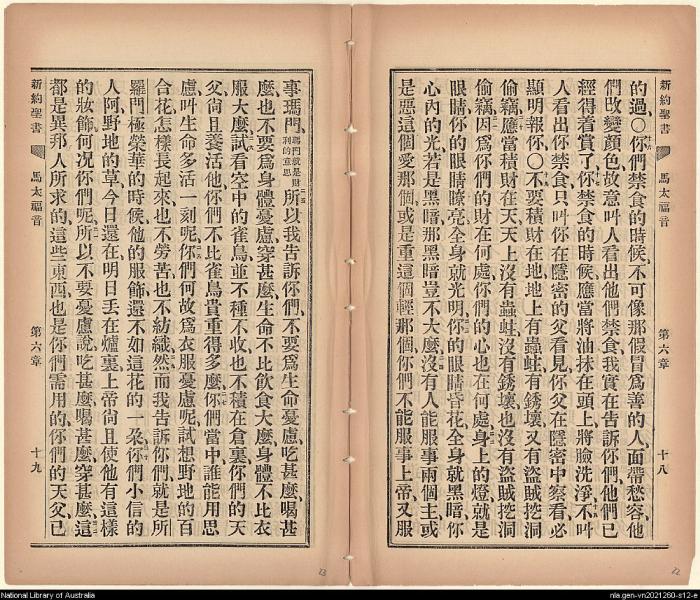 新約聖書 馬太福音 第六章 十八
的過○你們禁食的時候、不可像那假冒爲善的人、面帶愁容、他
們改變顏色、故意叫人看出他們禁食、我實在告訴你們、他們已
經得着賞了、你禁食的時候、應當將油抹在頭上、將臉洗淨、不叫
人看出你禁食、只叫你在隱密的父看見、你父在隱密中察看、必
顯明報你○不要積財在地、地上有蟲蛀、有銹壞、又有盜賊挖洞
偷竊、應當積財在天、天上沒有蟲蛀、沒有銹壞、也沒有盜賊挖洞
偷竊、因爲你們的財在何處、你們的心也在何處、身上的燈就是
眼睛、你的眼睛瞭亮、全身就光明、你的眼睛昏花、全身就黑暗、你
心內的光、若是黑暗、那黑暗豈不大麼、沒有人能服事兩個主、或
是惡這個愛那個、或是重這個輕那個、你們不能服事上帝、又服
事瑪門、瑪門就是財利的意思所以我告訴你們、不要爲生命憂慮、吃甚麼、喝甚
麼、也不要爲身體憂慮、穿甚麼、生命不比飲食大麼、身體不比衣
服大麼、試看空中的雀鳥、並不種、不收、也不積在倉裏、你們的天
父、尙且養活他、你們不比雀鳥貴重得多麼、你們當中誰能用思
慮、叫生命多活一刻呢、你們何故爲衣服憂慮呢、試想野地的百
合花、怎樣長起來、也不勞苦、也不紡織、然而我告訴你們、就是所
羅門極榮華的時候、他的服飾、還不如這花的一朶、你們小信的
人阿、野地的草、今日還在、明日丟在爐裏、上帝尙且使他有這樣
的妝飾、何况你們呢、所以不要憂慮說、吃甚麼、喝甚麼、穿甚麼、這
都是異邦人所求的、這些東西、也是你們需用的、你們的天父已
新約聖書 馬太福音 第六章 十九
23
22
National Library of Australia
nla.gen-vn2021260-s12-e